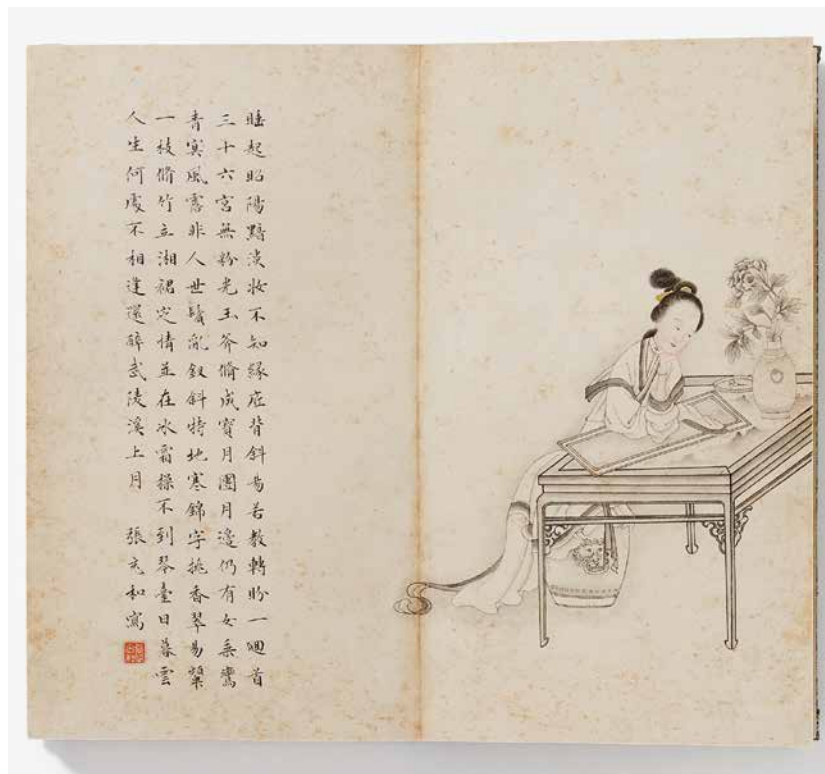 睡起昭陽黯淡妝不知緣底背斜陽若教轉盼一迴首
三十六宮無粉光玉斧脩成寶月團月邊仍有女乘鸞
青冥風露非人世鬢亂釵斜特地寒錦字挑香翠易顰
一枝脩竹立湘裙定情並在冰霜操不到琴臺日暮雲
人生何處不相逢還醉武陵溪上月 張充和寫